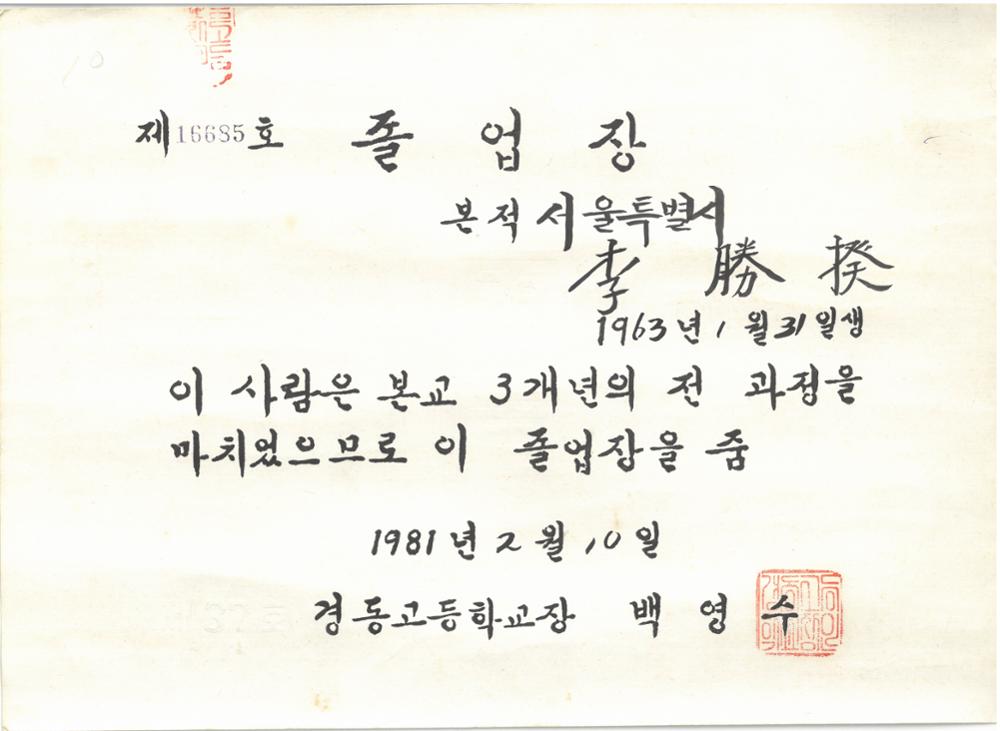 제16685호 졸업장
본적 서울특별시
李勝揆
1963년 1월 31일생
이 사람은 본교 3개년의 전 과정을
마치었으므로 이 졸업장을 줌
1981년 2월 10일
경동고등학교장 백영수